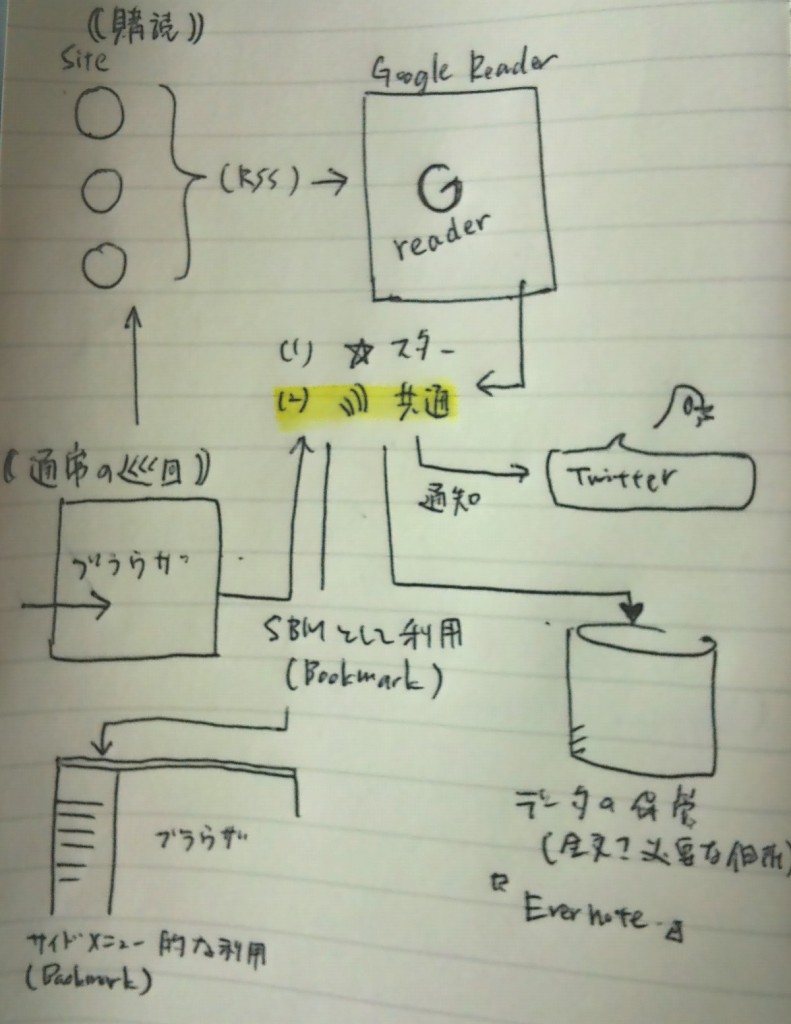 ((購読))
Site
Google Reader
(RSS) →
G
reader
(1) ☆ スター
(2) 共通
((通常の巡回))
Twitter
通知
ブラウザ
SBMとして利用
(Bookmark)
データの保管
(全文?必要な個所)
『Evernote』
ブラウザ
サイドメニュー的な利用
(Bookmark)